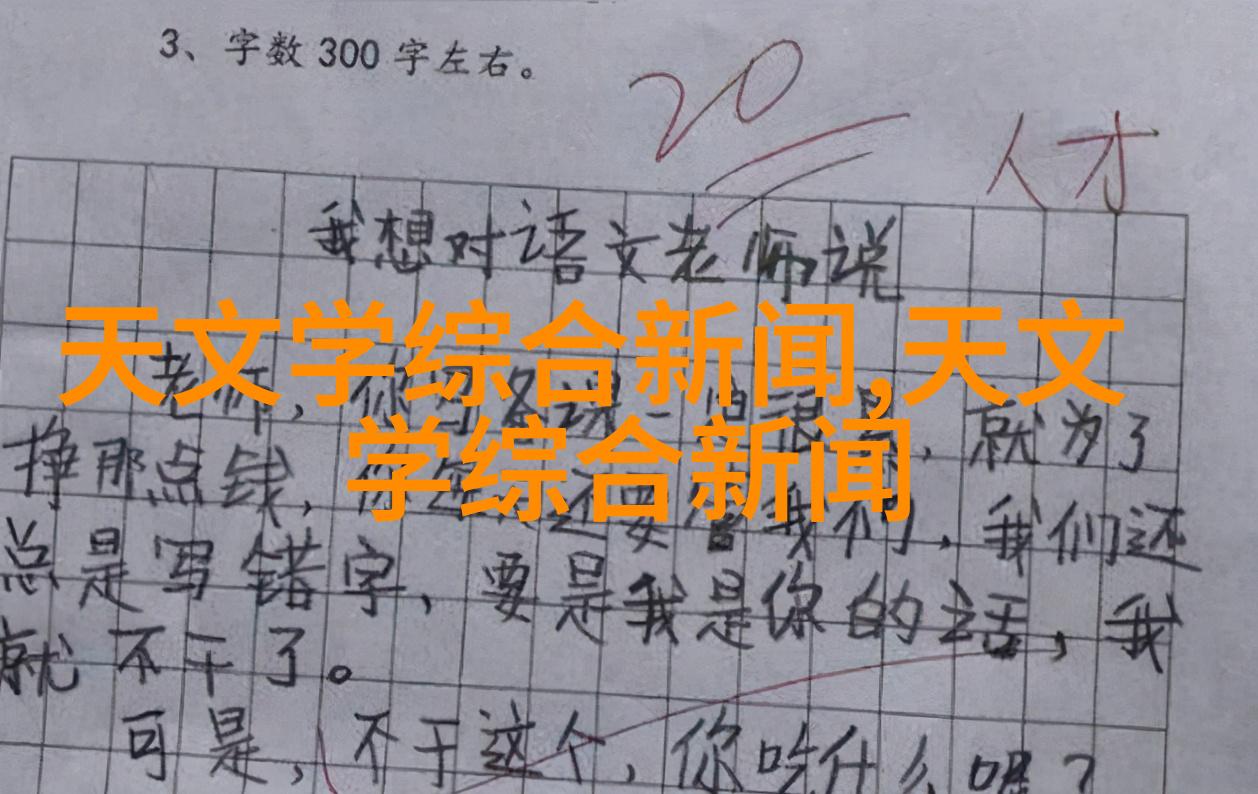 3、字数 300 字左右。
20
人才
我想对语文老师说
天文学综合新闻,天文
老师，你 就为了
学综合新闻
挣那点钱， 还要管我们，我们还
总是写错字，要是我是你的话，我
就不干了。
可是，不干这个，你吃什么